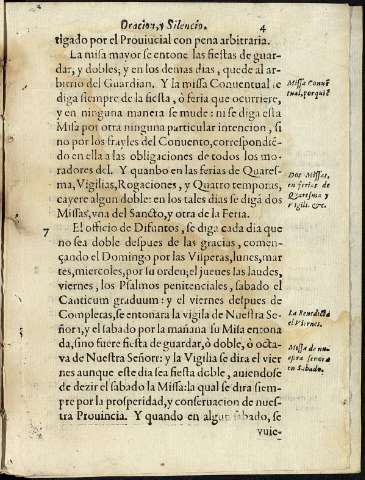 Oracion, y Silencio. 4
tigado por el Prouiucial con pena arbitraria.
La missa mayor se entone las fiestas de guar-
dar, y dobles; y en los demas dias, quede al ar-
bitrio del Guardian. Y la missa Conuentual se
diga siempre de la fiesta, ò feria que ocurriere,
y en ninguna manera se mude: ni se diga esta
Missa por otra ninguna particular intencion, si
no por los frayles del Conuento, correspondiẽ-
do en ella a las obligaciones de todos los mo-
radores del. Y quanbo en las ferias de Quares-
ma, Vigilias, Rogaciones, y Quatro temporas,
cayere algun doble: en los tales dias se digã dos
Missas, vna del Sancto, y otra de la Feria.
7 El officio de Difuntos, se diga cada dia que
no sea doble despues de las gracias, comen-
çando el Domingo por las Visperas, lunes, mar-
tes, miercoles, por su orden; el jueues las laudes,
viernes, los Psalmos penitenciales, sabado el
Canticum graduum: y el viernes despues de
Completas, se entonara la vigila de Nuestra Se-
ñora, y el sabado por la mañana su Missa entona
da, sino fuere fiesta de guardar, ò doble, ò octa-
va de Nuestra Señora: y la Vigilia se dira el vier
nes aunque este dia sea fiesta doble, auiendose
de dezir el sabado la Missa: la qual se dira siem-
pre por la prosperidad, y conseruacion de nues-
tra Prouincia. Y quando en algun sabado, se
vuie-
Missa Conuẽ
tual, por quiẽ
Dos Missas,
en ferias de
Quaresma y
Vigili. &c.
La Benedicta
el Viernes.
Missa de nu-
estra señora
en Sabado.